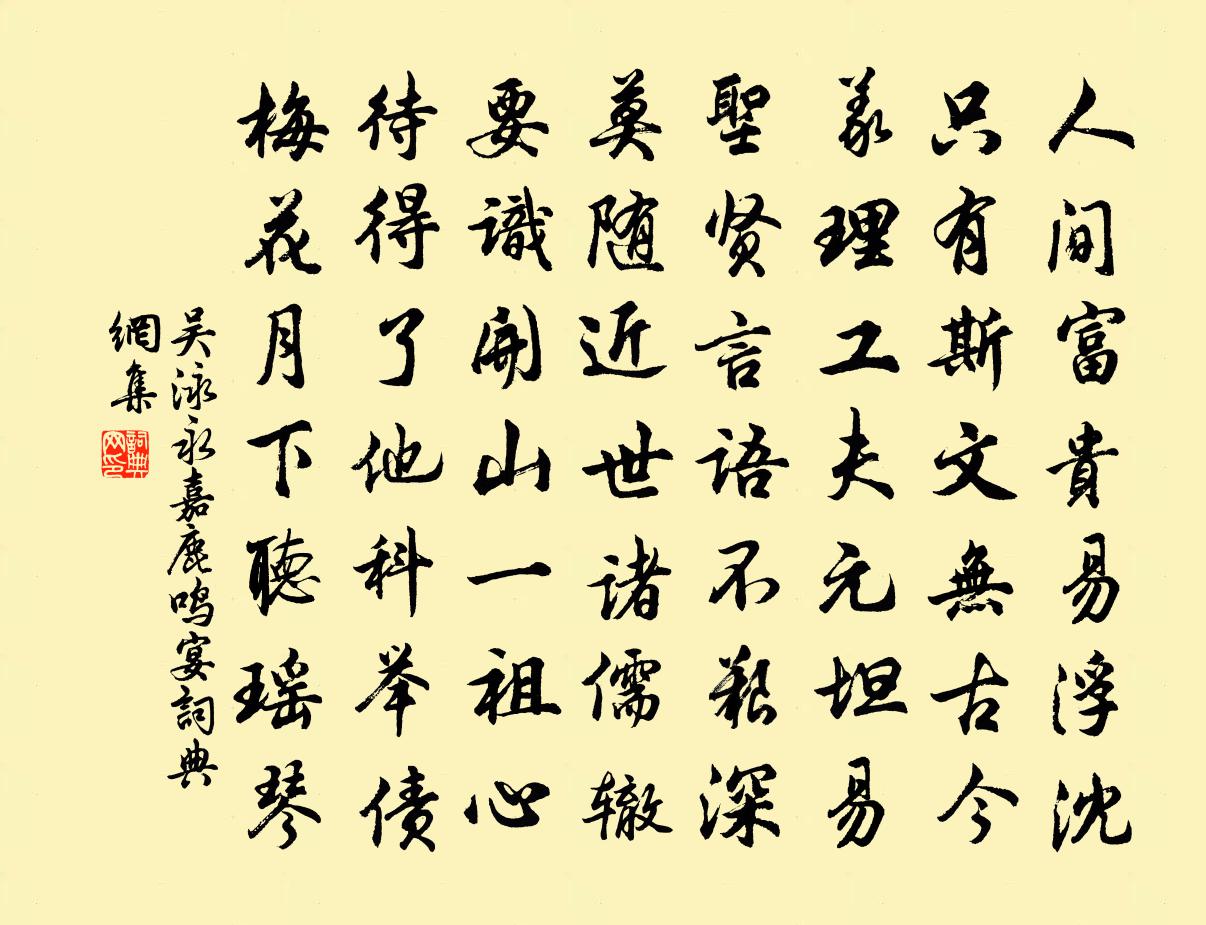 人间富貴易浮沈
只有斯文無古今
義理工夫元坦易
聖贤言語不艱深
莫随近世诸儒辙
要識開山一祖心
待得了他科举债
梅花月下聽瑶琴
吴泳永嘉鹿鸣宴詞典
網集
詞典网印